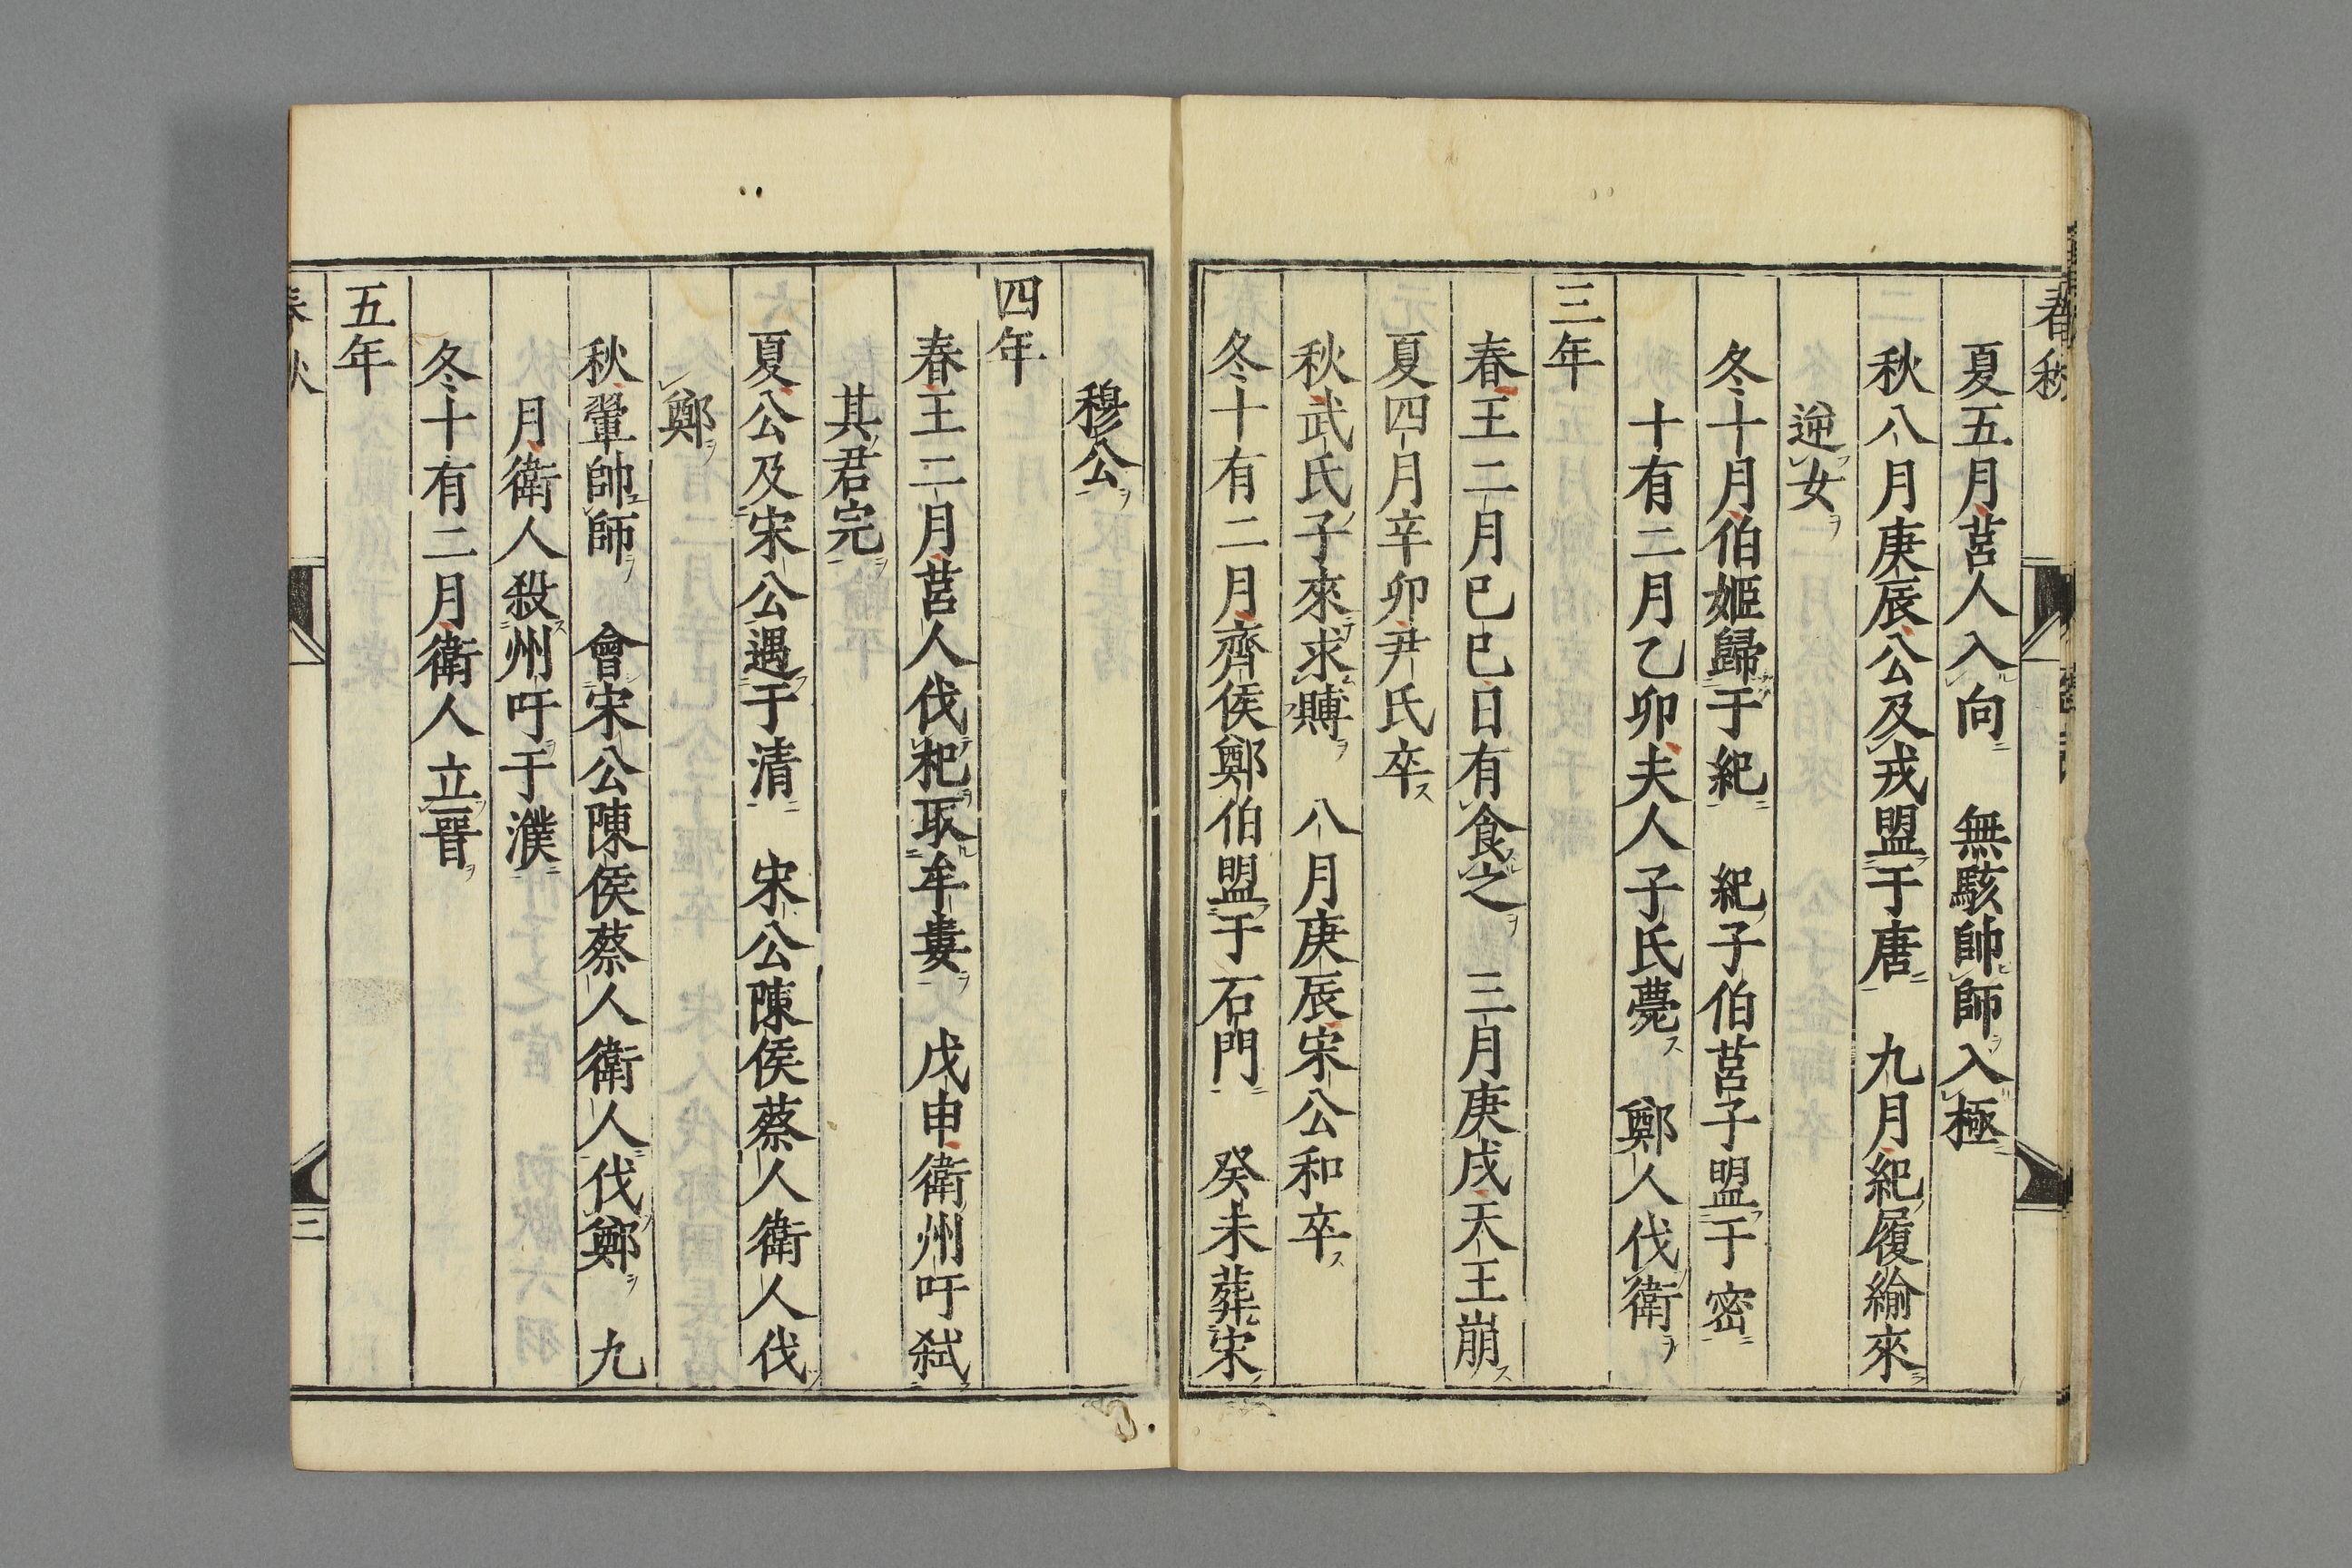 春秋
夏五月莒人入向　無駭帥師入極
秋八月庚辰公及戎盟于唐　九月紀履緰來
逆女
冬十月伯姬歸于紀　紀子伯莒子盟于密
十有二月乙卯夫人子氏薨　鄭人伐衛
三年
春王二月巳巳日有食之　三月庚戌天王崩
夏四月辛卯尹氏卒
秋武氏子來求賻　八月庚辰宋公和卒
冬十有二月齊侯鄭伯盟于石門　癸未葬宋
穆公
四年
春王二月莒人伐杞取牟婁　戊申衛州吁弑
其君完
夏公及宋公遇于清　宋公陳侯蔡人衛人伐
鄭
秋翬帥師　會宋公陳侯蔡人衛人伐鄭　九
月衛人殺州吁于濮
冬十有二月衛人立晉
五年
春秋
二